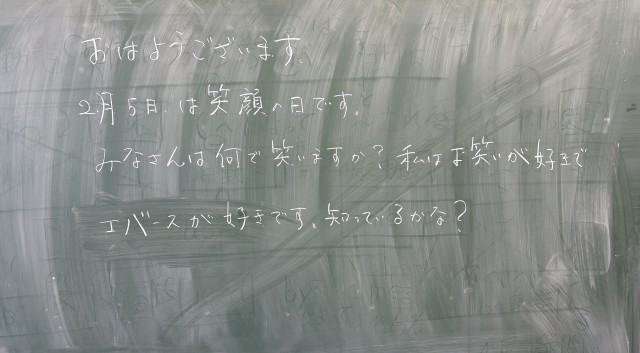 おはようございます。
2月5日は笑顔の日です。
みなさんは何で笑いますか？私はお笑いが好きで
エバースが好きです。知っているかな？